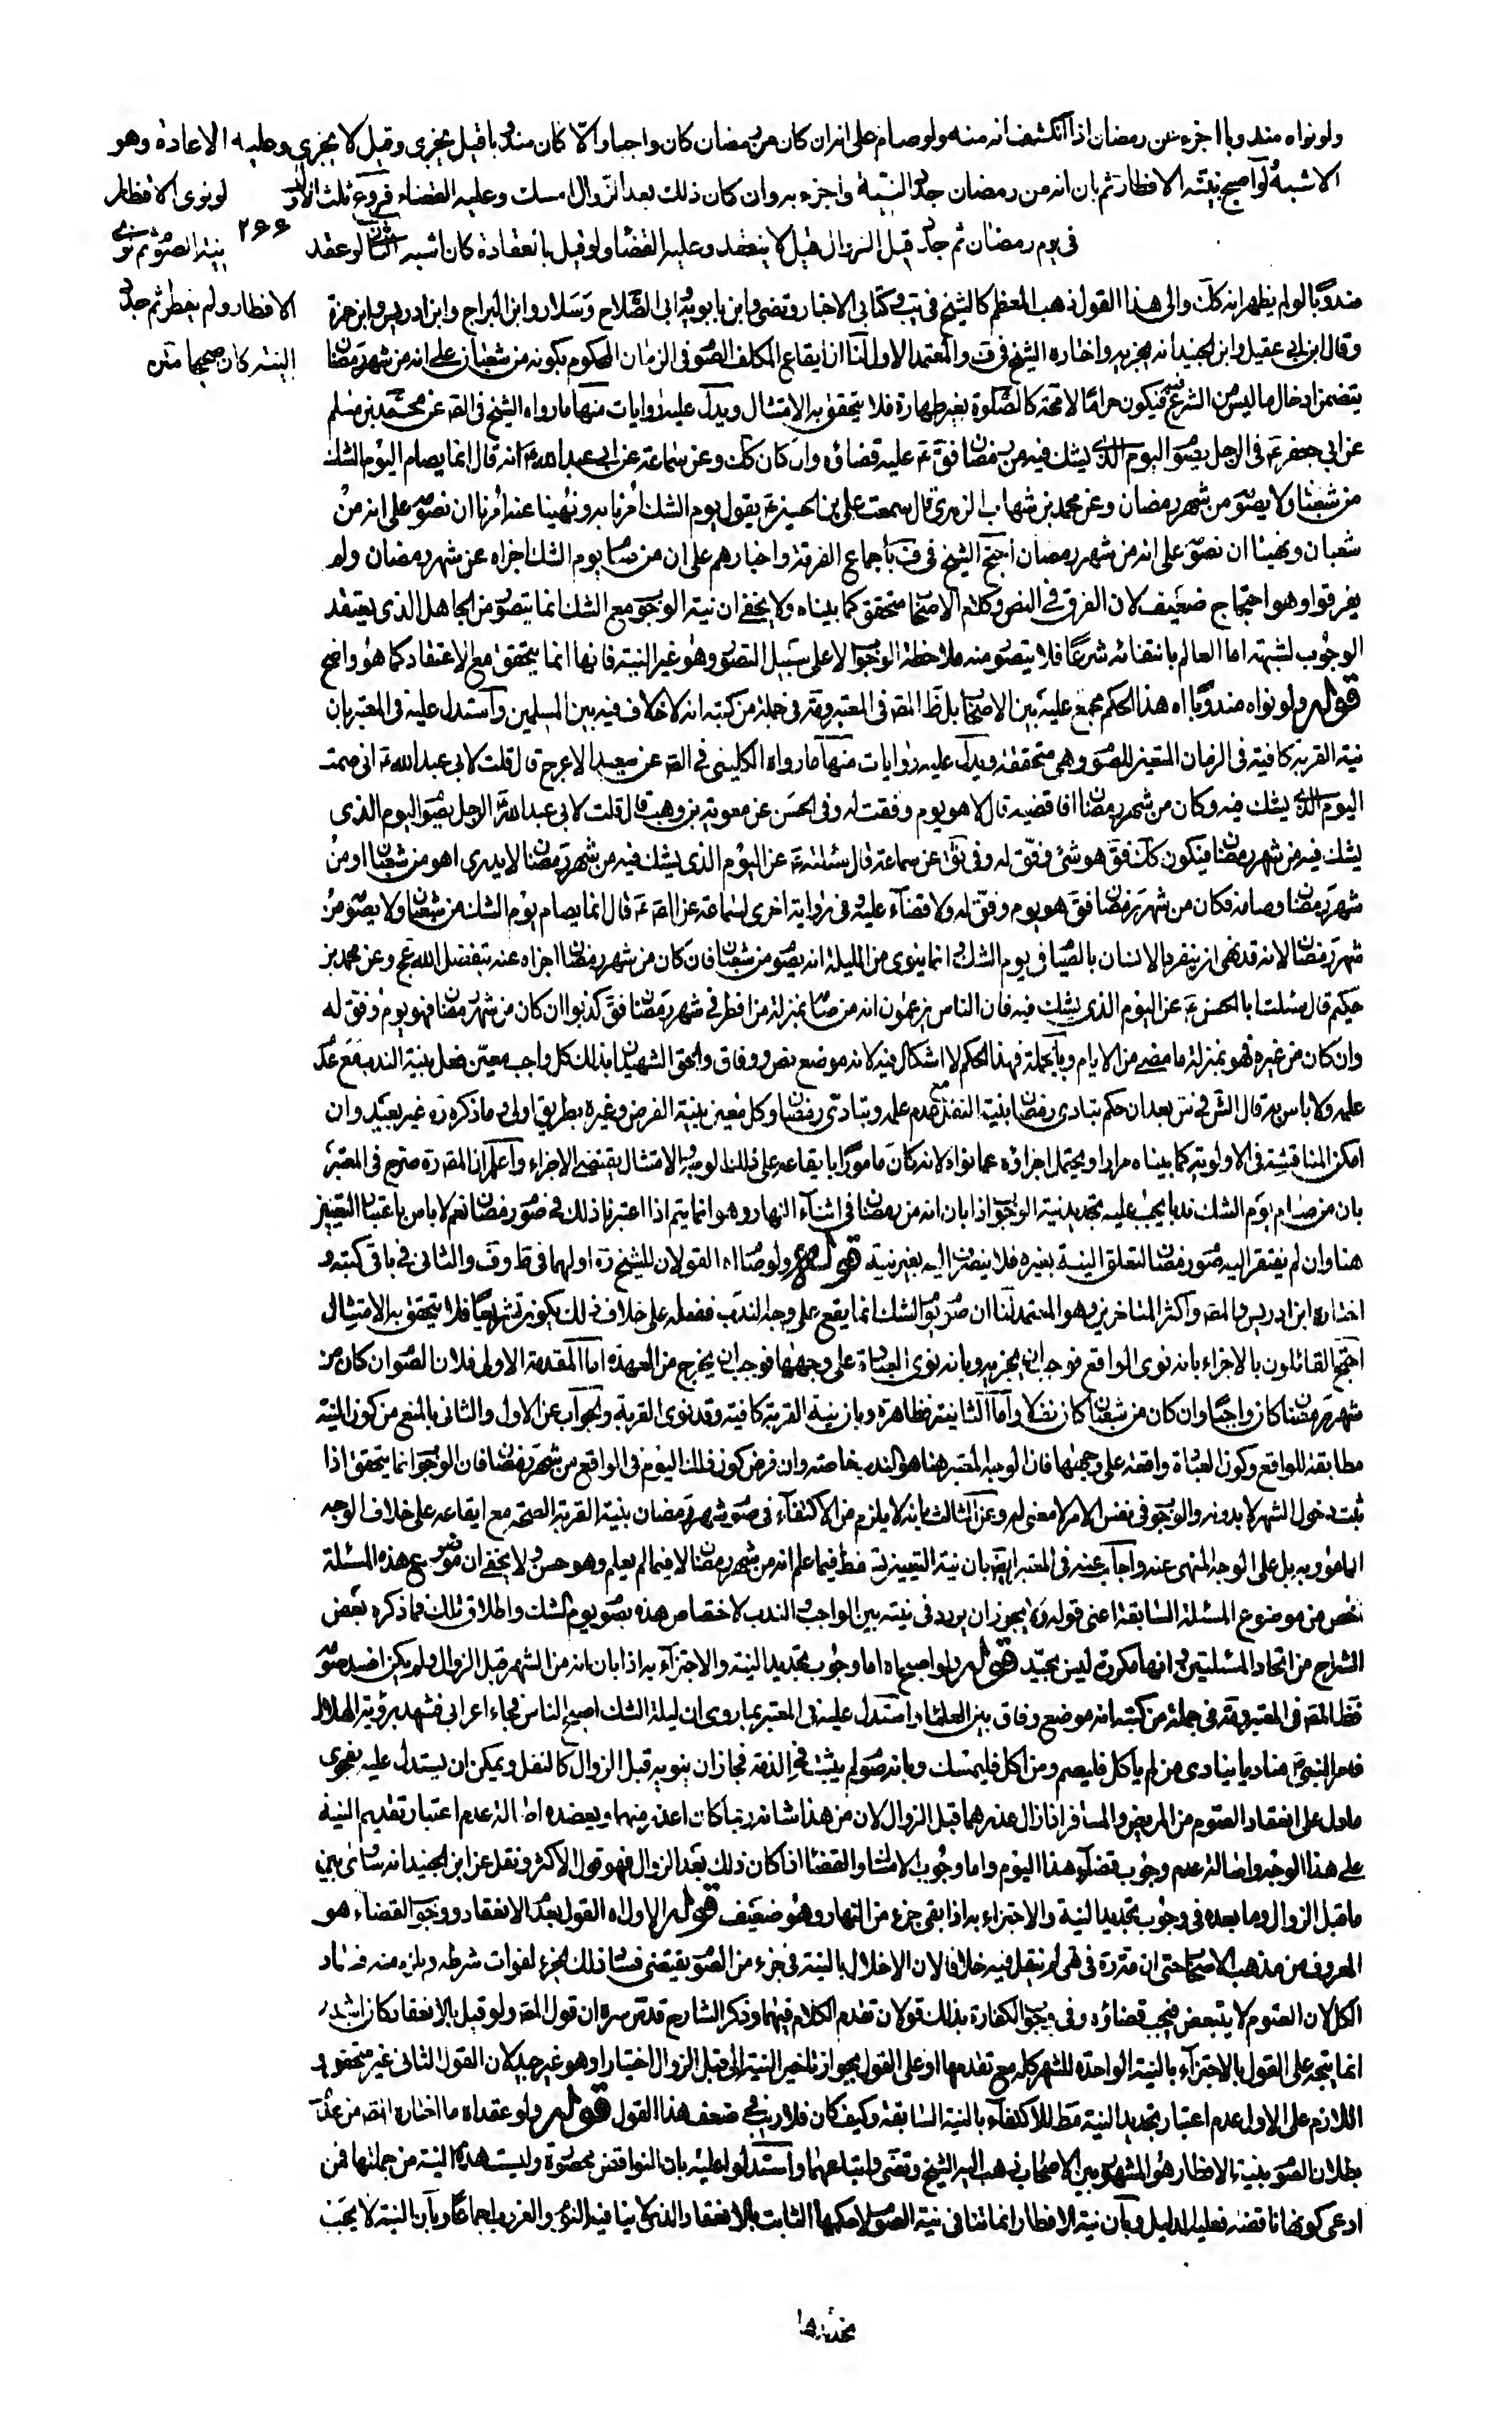 ولو نواه مندوبا اجزء عن رمضان اذا انكشف انه منه ولو صام على انه ان كان من رمضان كان واجبا والا كان مندوبا قيل يجزى وقيل لا يجزى وعليه الاعادة وهو
الاشبه ولو اصبح بنية الافطار ثم بان انه من رمضان جدد النية واجزء به وان كان ذلك بعد الزوال امسك وعليه القضاء فروع ثلثة الاول لو نوى الافطار
فى يوم رمضان ثم جدد قبل الزوال قيل لا ينعقد وعليه القضا ولو قيل بانعقاده كان اشبه الثانى لو عقد ٢٦٦ نية الصوم ثم نوى
الافطار ولم يفطر ثم جدد
النية كان صحيحا متن
مندوبا لو لم يظهر انه كك والى هذا القول ذهب المعظم كالشيخ فى يب وكتابى الاخبار وتضى وابن بابويه وابى الصلاح وسلار وابن البراج وابن ادريس وابن حمزة
وقال ابن ابى عقيل وابن الجنيد انه يجزيه واختاره الشيخ فى ف والمعتمد الاول لنا ان ايقاع المكلف الصوم فى الزمان المحكوم بكونه من شعبان على انه من شهر رمضان
يتضمن ادخال ما ليس من الشرع فيه فيكون حراما لا محة كالصلوة بغير طهارة فلا يتحقق به الامتثال ويدل عليه روايات منها ما رواه الشيخ فى الصه عن محمد بن مسلم
عن ابى جعفر ع فى الرجل يصوم اليوم الذى يشك فيه من رمضان فق ع عليه قضاؤه وان كان كك وعن سماعة عن ابى عبد الله ع انه قال انما يصام اليوم الشك
من شعبان ولا يصوم من شهر رمضان وعن محمد بن شهاب الزهرى قال سمعت على بن الحسين ع يقول يوم الشك امرنا به ونهينا عنه امرنا ان نصوم على انه من
شعبان ونهينا ان نصوم على انه من شهر رمضان احتج الشيخ فى ف باجماع الفرقة واخبارهم على ان من صام يوم الشك اجزاه عن شهر رمضان ولم
يفرقوا وهو احتجاج ضعيف لان الفرق فى النص وكلام الاصحاب متحقق كما بيناه ولا يخفى ان نية الوجوب مع الشك انما يتصور من الجاهل الذى يعتقد
الوجوب لشبهة اما العالم بانتفائه شرعا فلا يتصور منه ملاحظة الوجوب الا على سبيل التصور وهو غير النية فانها انما يتحقق مع الاعتقاد كما هو واضح
قوله ولو نواه مندوبا اه هذا الحكم مجمع عليه بين الاصحاب بل ظ المصه فى المعتبر وقه فى جملة من كتبه انه لا خلاف فيه بين المسلمين واستدل عليه فى المعتبر بان
نية القربة كافية فى الزمان المتعين للصوم وهى متحققة ويدل عليه روايات منها ما رواه الكلينى فى الصه عن سعيد الاعرج قال قلت لابى عبد الله ع انى صمت
اليوم الذى يشك فيه وكان من شهر رمضان افاقضيه قال لا هو يوم وفقت له وفى الحسن عن معوية بن وهب قال قلت لابى عبد الله ع الرجل يصوم اليوم الذى
يشك فيه من شهر رمضان فيكون كك فق هو شئ وفق له وفى ثق عن سماعة قال سئلته ع عن اليوم الذى يشك فيه من شهر رمضان لا يدرى اهو من شعبان او من
شهر رمضان وصامه فكان من شهر رمضان فق هو يوم وفق له ولا قضاء عليه وفى رواية اخرى لسماعة عن الصه ع قال انما يصام يوم الشك من شعبان ولا يصوم من
شهر رمضان لانه قد نهى ان ينفرد الانسان بالصيام فى يوم الشك وانما ينوى من الليلة انه يصوم من شعبان فان كان من شهر رمضان اجزاه عنه بتفضل الله عج وعن محمد بن
حكيم قال سئلت ابا الحسن ع عن اليوم الذى يشك فيه فان الناس يزعمون انه من صامه بمنزلة من افطر فى شهر رمضان فق كذبوا ان كان من شهر رمضان فهو يوم وفق له
وان كان من غيره فهو بمنزلة ما مضى من الايام وبالجملة فهذا الحكم لا اشكال فيه لانه موضع نص ووفاق والحق الشهيدان بذلك كل واجب معين فعل بنية الندب مع عدم
علمه ولا باس به قال الش فى س بعد ان حكم بتادى رمضان بنية النفل مع عدم علمه ويتادى رمضان وكل معين بنية الفرض وغيره بطريق اولى وما ذكره ره غير بعيد وان
امكن المناقشة فى الاولوية كما بيناه مرارا ويحتمل اجزاؤه عما نواه لانه كان مامورا بايقاعه على ذلك الوجه والامتثال يقتضى الاجزاء واعلم ان المصه ره صرح فى المعتبر
بان من صام يوم الشك ندبا يجب عليه تجديد نية الوجوب اذا بان انه من رمضان فى اثناء النهار وهو انما يتم اذا اعتبرنا ذلك فى صوم رمضان نعم لا باس باعتبار التعيين
هنا وان لم يفتقر اليه صوم رمضان لتعلق النية بغيره فلا ينصرف اليه بغير نية قوله ولو صام اه القولان للشيخ ره اولهما فى ط وف والثانى فى باقى كتبه و
اختاره ابن ادريس والمصه واكثر المتاخرين وهو المعتمد لنا ان صوم يوم الشك انما يقع على وجه الندب ففعله على خلاف ذلك يكون تشريعا فلا يتحقق به الامتثال
احتج القائلون بالاجزاء بانه نوى الواقع فوجب ان يجزيه وبانه نوى العبادة على وجهها فوجب ان يخرج من العهدة اما المقدمة الاولى فلان الصوم ان كان من
شهر رمضان كان واجبا وان كان من شعبان كان نفلا واما الثانية فظاهرة وبان نية القربة كافية وقد نوى القربة والجواب عن الاول والثانى بالمنع من كون النية
مطابقة للواقع وكون العبادة واقعة على وجهها فان الوجه المعتبر هنا هو الندب خاصة وان فرض كون ذلك اليوم فى الواقع من شهر رمضان فان الوجوب انما يتحقق اذا
ثبت دخول الشهر لا بدونه والوجوب فى نفس الامر لا معنى له وعن الثالث بانه لا يلزم من الاكتفاء فى صوم شهر رمضان بنية القربة الصحة مع ايقاعه على خلاف الوجه
المامور به بل على الوجه المنهى عنه واجاب عنه فى المعتبر ايضا بان نية التعيين تسقط فيما علم انه من شهر رمضان لا فيما لم يعلم وهو حسن ولا يخفى ان موضوع هذه المسئلة
اخص من موضوع المسئلة السابقة اعنى قوله ولا يجوز ان يردد فى نيته بين الواجب والندب لاختصاص هذه بصوم يوم الشك واطلاق تلك فما ذكره بعض
الشراح من اتحاد المسئلتين وانها مكررة ليس بجيد قوله ولو اصبح اه اما وجوب تجديد النية والاجتزاء به اذا بان انه من الشهر قبل الزوال ولم يكن افسد صومه
فظ المصه فى المعتبر وقه فى جملة من كتبه انه موضع وفاق بين العلماء واستدل عليه فى المعتبر بما روى ان ليلة الشك اصبح الناس فجاء اعرابى فشهد برؤية الهلال
فامر النبى ص مناديا ينادى من لم ياكل فليصم ومن اكل فليمسك وبانه صوم لم يثبت فى الذمة فجاز ان ينويه قبل الزوال كالنفل ويمكن ان يستدل عليه بفحوى
ما دل على انعقاد الصوم من المريض والمسافر اذا زال عذرهما قبل الزوال لان من هذا شانه ربما كان اعذر منهما ويعضده اصالة عدم اعتبار تقديم النية
على هذا الوجه واصالة عدم وجوب قضاء هذا اليوم واما وجوب الامساك والقضاء اذا كان ذلك بعد الزوال فهو قول الاكثر ونقل عن ابن الجنيد انه ساوى بين
ما قبل الزوال وما بعده فى وجوب تجديد النية والاجتزاء به اذا بقى جزء من النهار وهو ضعيف قوله الاول اه القول بعدم الانعقاد ووجوب القضاء هو
المعروف من مذهب الاصحاب حتى ان قه ره فى هى لم ينقل فيه خلافا لان الاخلال بالنية فى جزء من الصوم يقتضى فساد ذلك الجزء لفوات شرطه ويلزم منه فساد
الكل لان الصوم لا يتبعض فيجب قضاؤه وفى وجوب الكفارة بذلك قولان تقدم الكلام فيهما وذكر الشارح قدس سره ان قول المصه ولو قيل بالانعقاد كان اشبه
انما يتجه على القول بالاجتزاء بالنية الواحدة للشهر كله مع تقدمها او على القول بجواز تاخير النية الى قبل الزوال اختيارا وهو غير جيد لان القول الثانى غير متحقق و
اللازم على الاول عدم اعتبار تجديد النية مط للاكتفاء بالنية السابقة وكيف كان فلا ريب فى ضعف هذا القول قوله ولو عقد اه ما اختاره المصه من عدم
بطلان الصوم بنية الافطار هو المشهور بين الاصحاب ذهب اليه الشيخ وتضى واتباعهما واستدلوا عليه بان النواقض محصورة وليست هذه النية من جملتها فمن
ادعى كونها ناقضة فعليه الدليل وبان نية الافطار انما تنافى نية الصوم لا حكمها الثابت بالانعقاد الذى لا ينافيه النوم والعزوب اجماعا وبان النية لا يجب
تجديدها